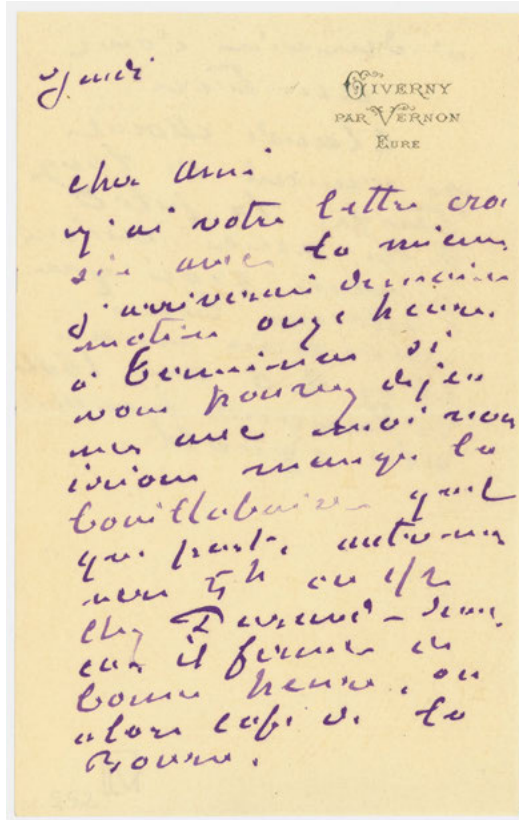 Jeudi
GIVERNY
PAR VERNON
EURE
cher ami
j'ai votre lettre croi
sée avec la mienne
j'arriverai demain
matin onze heures
à Terminus si
vous pouvez déjeu
ner avec moi nous
irions manger la
bouillabaisse quel
que part, autrement
vers 5h ou 1/2
chez Durand-
car il ferme de
bonne heure, ou
alors café de la
Bourse.